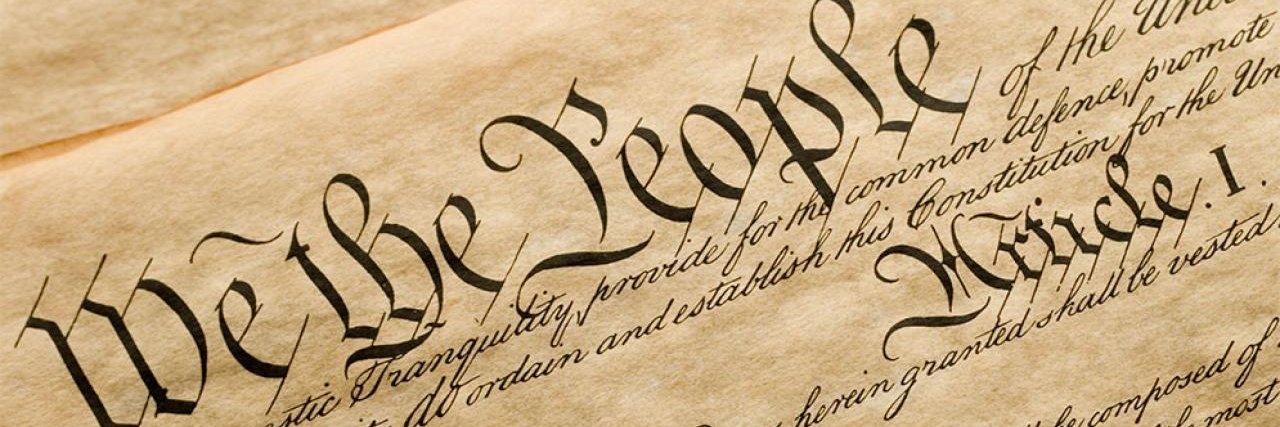 We the People of the
Tranquility, provide for the common defence, promote
do ordain and establish this Constitution for the
Article. I.
herein granted shall be vested
be composed of
most